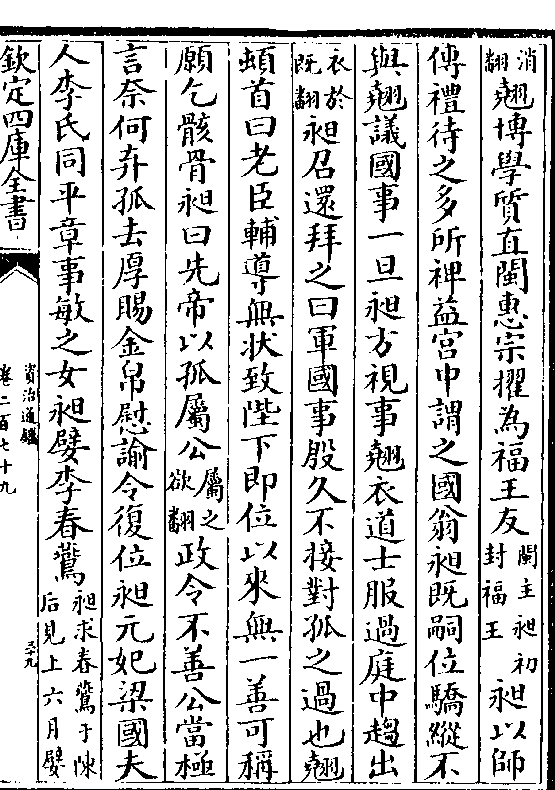 消翻翹博學質直閩惠宗擢為福王友閩主昶初封福王昶以師
傅禮待之多所裨益宮中謂之國翁昶既嗣位驕縱不
與翹議國事一旦昶方視事翹衣道士服過庭中趨出
衣於既翻昶召還拜之曰軍國事殷久不接對孤之過也翹
頓首曰老臣輔導無狀致陛下即位以來無一善可稱
願乞骸骨昶曰先帝以孤屬公屬之欲翻政令不善公當極
言奈何弃孤去厚賜金帛慰諭令復位昶元妃梁國夫
人李氏同平章事敏之女昶嬖李春鷰昶求春鷰于陳后見上六月嬖
欽定四庫全書
資治通鑑
卷二百七十九
三十九